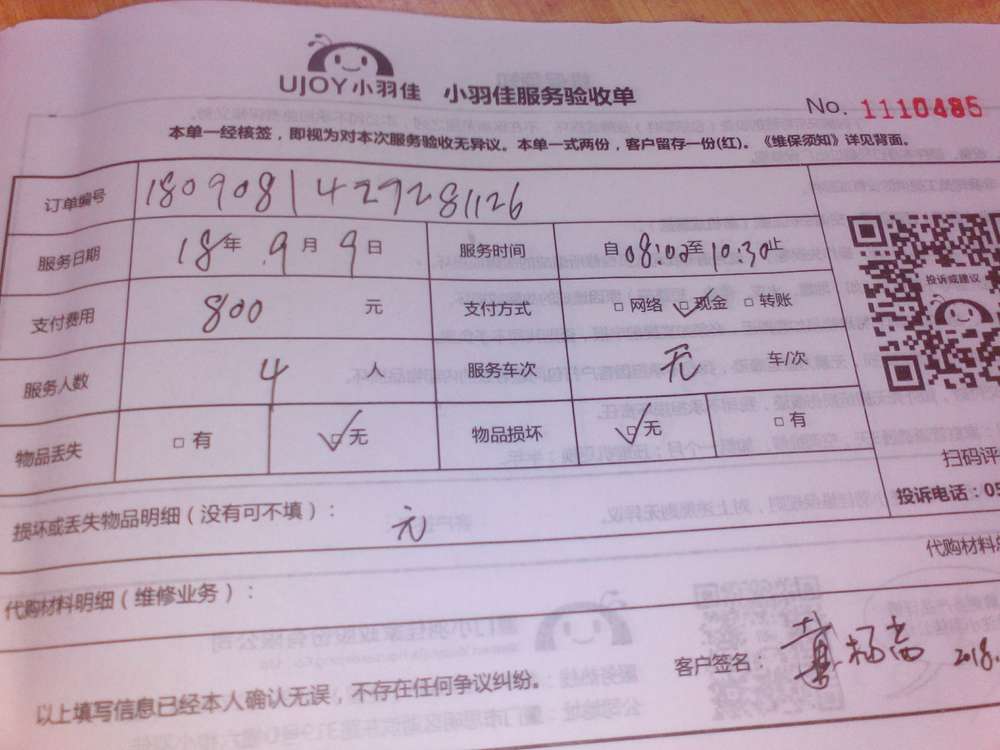 UJOY小羽佳 小羽佳服务验收单
No. 1110485
本单一经核签，即视为对本次服务验收无异议。本单一式两份，客户留存一份(红)。《维保须知》详见背面。
订单编号 180908142928 1126
服务日期 18年 9月 9日 服务时间 自08:00至10:30止
支付费用 800 元 支付方式 □网络 ☑现金 □转账
服务人数 4 人 服务车次 无 车/次
物品丢失 □有 ☑无 物品损坏 ☑无 □有
投诉或建议
扫码评
投诉电话：05
损坏或丢失物品明细（没有可不填）： 无
代购材料
代购材料明细（维修业务）：
客户签名： 2018.
以上填写信息已经本人确认无误，不存在任何争议纠纷。